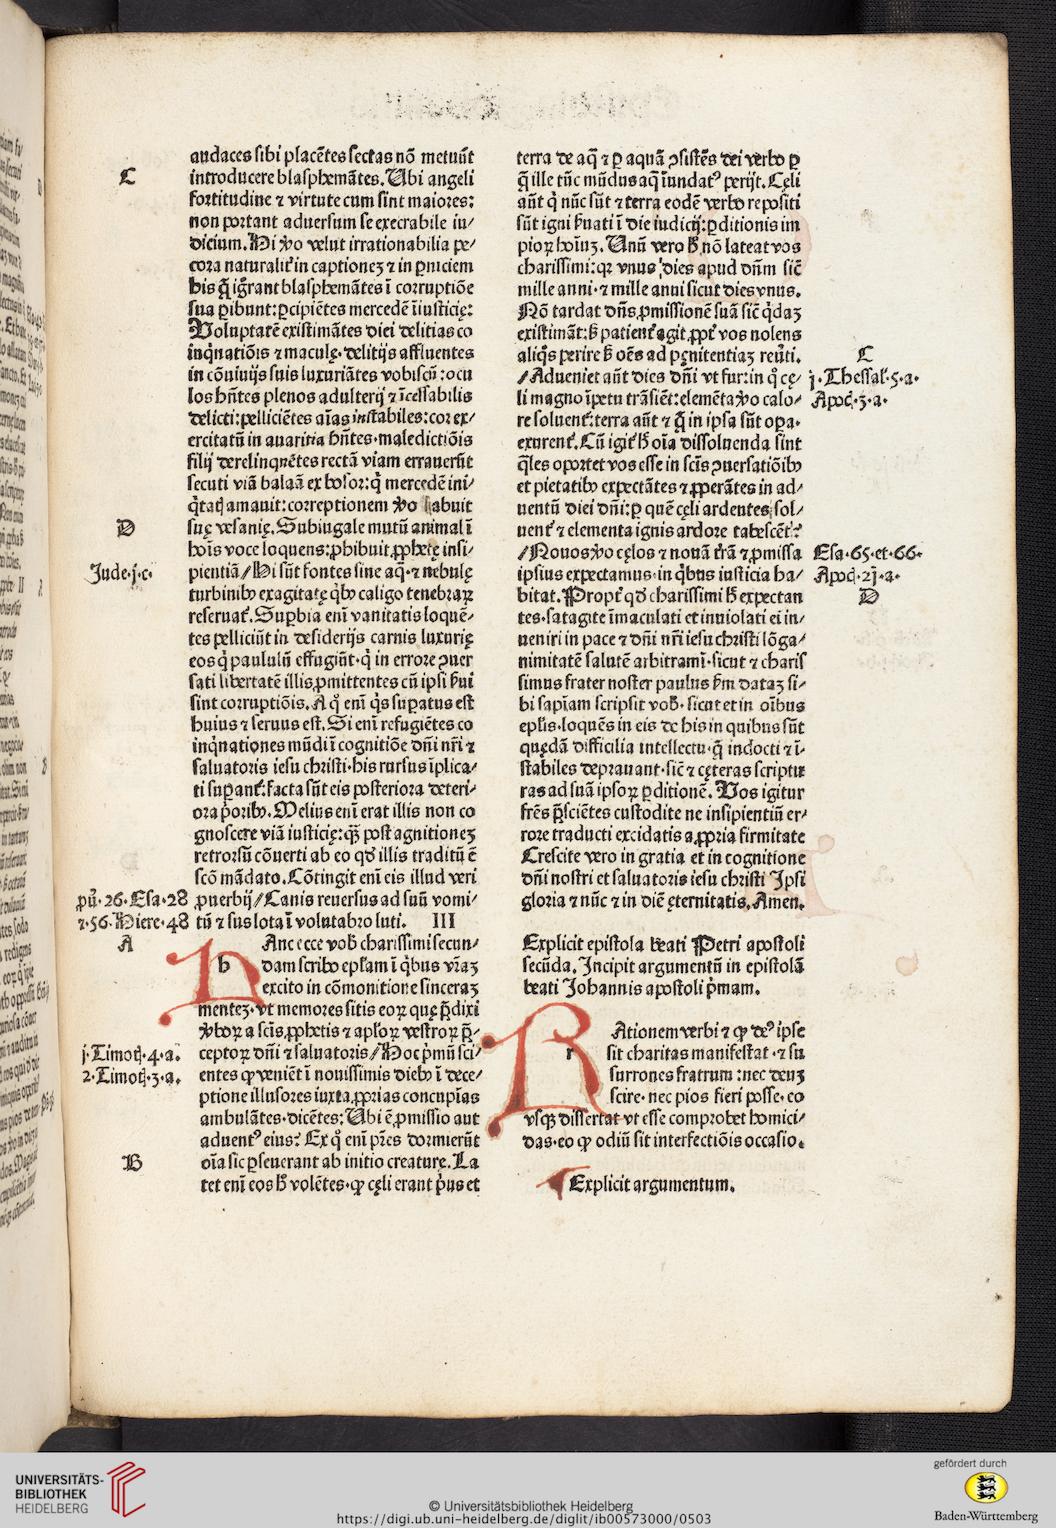 audaces sibi placẽtes sectas nõ metuũt
introducere blasphemãtes. Ubi angeli
fortitudine ⁊ virtute cum sint maiores:
non portant aduersum se execrabile iu/
dicium. Hi ꝟo velut irrationabilia pe/
cora naturalit̓ in captioneꝫ ⁊ in ꝑniciem
his q̃ ig̃rant blasphemãtes ĩ corruptiõe
sua ꝑibunt: ꝑcipiẽtes mercedẽ ĩiusticię:
Voluptatẽ existimãtes diei delitias co
inq̇natiõis ⁊ maculę. delitijs affluentes
in cõuiuijs suis luxuriãtes vobiscũ: ocu
los hñtes plenos adulterij ⁊ ĩcessabilis
delicti: pelliciẽtes aĩas instabiles: cor ex/
ercitatũ in auaritia hñtes. maledictiõis
filij derelinquẽtes rectã viam errauerũt
secuti viã balaã ex bosor: q̇ mercedẽ ini/
q̇tatꝭ amauit: correptionem ꝟo habuit
suę vesanię. Subiugale mutũ animal ĩ
hoĩs voce loquens: ꝓhibuit ꝓphetę insi/
pientiã/ Hi sũt fontes sine aq̃. ⁊ nebulę
turbinibꝰ exagitatę q̇bꝰ caligo tenebraꝝ
reseruat̓. Suꝑbia enĩ vanitatis loquẽ/
tes pelliciũt in desiderijs carnis luxurię
eos q̇ paululũ effugiũt. q̇ in errore ꝯuer
sati libertatẽ illis ꝓmittentes cũ ipsi ẜui
sint corruptiõis. A qͦ enĩ q̇s suꝑatus est
huius ⁊ seruus est. Si enĩ refugiẽtes co
inq̇nationes mũdi ĩ cognitiõe dñi nr̃i ⁊
saluatoris iesu christi. his rursus ĩplica/
ti suꝑant̓: facta sũt eis posteriora deteri/
ora p̓oribꝰ. Melius enĩ erat illis non co
gnoscere viã iusticię: q̃ꝫ post agnitioneꝫ
retrorsũ cõuerti ab eo qď illis traditũ ẽ
scõ mãdato. Cõtingit enĩ eis illud veri
ꝓuerbij/ Canis reuersus ad suũ vomi/
tũ ⁊ sus lota ĩ volutabro luti. III
h Anc ecce vob̓ charissimi secun/
dam scribo epl̓am ĩ q̇bus vr̃aꝫ
excito in cõmonitione sinceraꝫ
menteꝫ. vt memores sitis eoꝝ quę p̃dixi
ꝟboꝝ a scĩs ꝓphetis ⁊ apl̓oꝝ vestroꝝ p̃/
ceptoꝝ dñi ⁊ saluatoris/ Hoc p̓mũ sci/
entes ꝙ veniẽt ĩ nouissimis diebꝰ ĩ dece/
ptione illusores iuxta ꝓprias concupĩas
ambulãtes. dicẽtes: Ubi ẽ ꝓmissio aut
aduentꝰ eius? Ex qͦ enĩ pr̃es dormierũt
oĩa sic ꝑseuerant ab initio creaturę. La
tet enĩ eos h̓ volẽtes. ꝙ cęli erant p̓us et
C
D
Jude. j. c.
ꝓũ. 26. Esa. 28
⁊. 56. Hiere. 48
A
j. Timotꝭ. 4. a.
2. Timotꝭ. 3. a.
B
terra de aq̃ ⁊ ꝑ aquã ꝯsistẽs dei verbo ꝑ
q̃ ille tũc mũdus aq̃ ĩundatꝰ perijt. Cęli
aũt q̇ nũc sũt ⁊ terra eodẽ verbo repositi
sũt igni ẜuati ĩ die iudicij: ꝑditionis im
pioꝝ hoĩuꝫ. Unũ vero h̓ nõ lateat vos
charissimi: qꝛ vnus dies apud dñm sic̃
mille anni. ⁊ mille anni sicut dies vnus.
Nõ tardat dñs ꝓmissionẽ suã sic̃ q̇daꝫ
existimãt: ẜ patient̓ agit ꝓpt̓ vos nolens
aliq̇s perire ẜ oẽs ad pęnitentiaꝫ reũti.
/Adueniet aũt dies dñi vt fur: in qͦ cę/
li magno ĩpetu trãsiẽt: elemẽta ꝟo calo/
re soluent̓: terra aũt ⁊ q̃ in ipsa sũt oꝑa.
exurent̓. Cũ igit̓ h̓ oĩa dissoluenda sint
q̃les oportet vos esse in scĩs ꝯuersatiõibꝰ
et pietatibꝰ expectãtes ⁊ ꝓperãtes in ad/
uentũ diei dñi: ꝑ quẽ cęli ardentes sol/
uent̓ ⁊ elementa ignis ardore tabescẽt?
/Nouos ꝟo cęlos ⁊ nouã t̓rã ⁊ ꝓmissa
ipsius expectamus. in q̇bus iusticia ha/
bitat. Propt̓ qď charissimi h̓ expectan
tes. satagite ĩmaculati et inuiolati ei in/
ueniri in pace ⁊ dñi nr̃i iesu christi lõga/
nimitatẽ salutẽ arbitramĩ. sicut ⁊ charis
simus frater noster paulus ẜm dataꝫ si/
bi sapĩam scripsit vob̓. sicut et in oĩbus
epl̓is. loquẽs in eis de his in quibus sũt
quędã difficilia intellectu. q̃ indocti ⁊ ĩ/
stabiles deprauant. sic̃ ⁊ cęteras scriptu
ras ad suã ipsoꝝ ꝑditionẽ. Vos igitur
fr̃es p̃sciẽtes custodite ne insipientiũ er/
rore traducti excidatis a ꝓpria firmitate
Crescite vero in gratia et in cognitione
dñi nostri et saluatoris iesu christi Ipsi
gloria ⁊ nũc ⁊ in diẽ ęternitatis. Amen.
Explicit epistola beati Petri apostoli
secũda. Incipit argumentũ in epistolã
beati Johannis apostoli p̓mam.
r Ationem verbi ⁊ ꝙ deꝰ ipse
sit charitas manifestat. ⁊ su
surrones fratrum: nec deuꝫ
scire. nec pios fieri posse. eo
vsqꝫ dissertat vt esse comprobet homici/
das. eo ꝙ odiũ sit interfectiõis occasio.
Explicit argumentum.
C
j. Thessal̓. 5. a.
Apoc̓. 3. a.
Esa. 65. et. 66.
Apoc̓. 21. a.
D
UNIVERSITÄTS-
BIBLIOTHEK
HEIDELBERG
© Universitätsbibliothek Heidelberg
https://digi.ub.uni-heidelberg.de/diglit/ib00573000/0503
gefördert durch
Baden-Württemberg